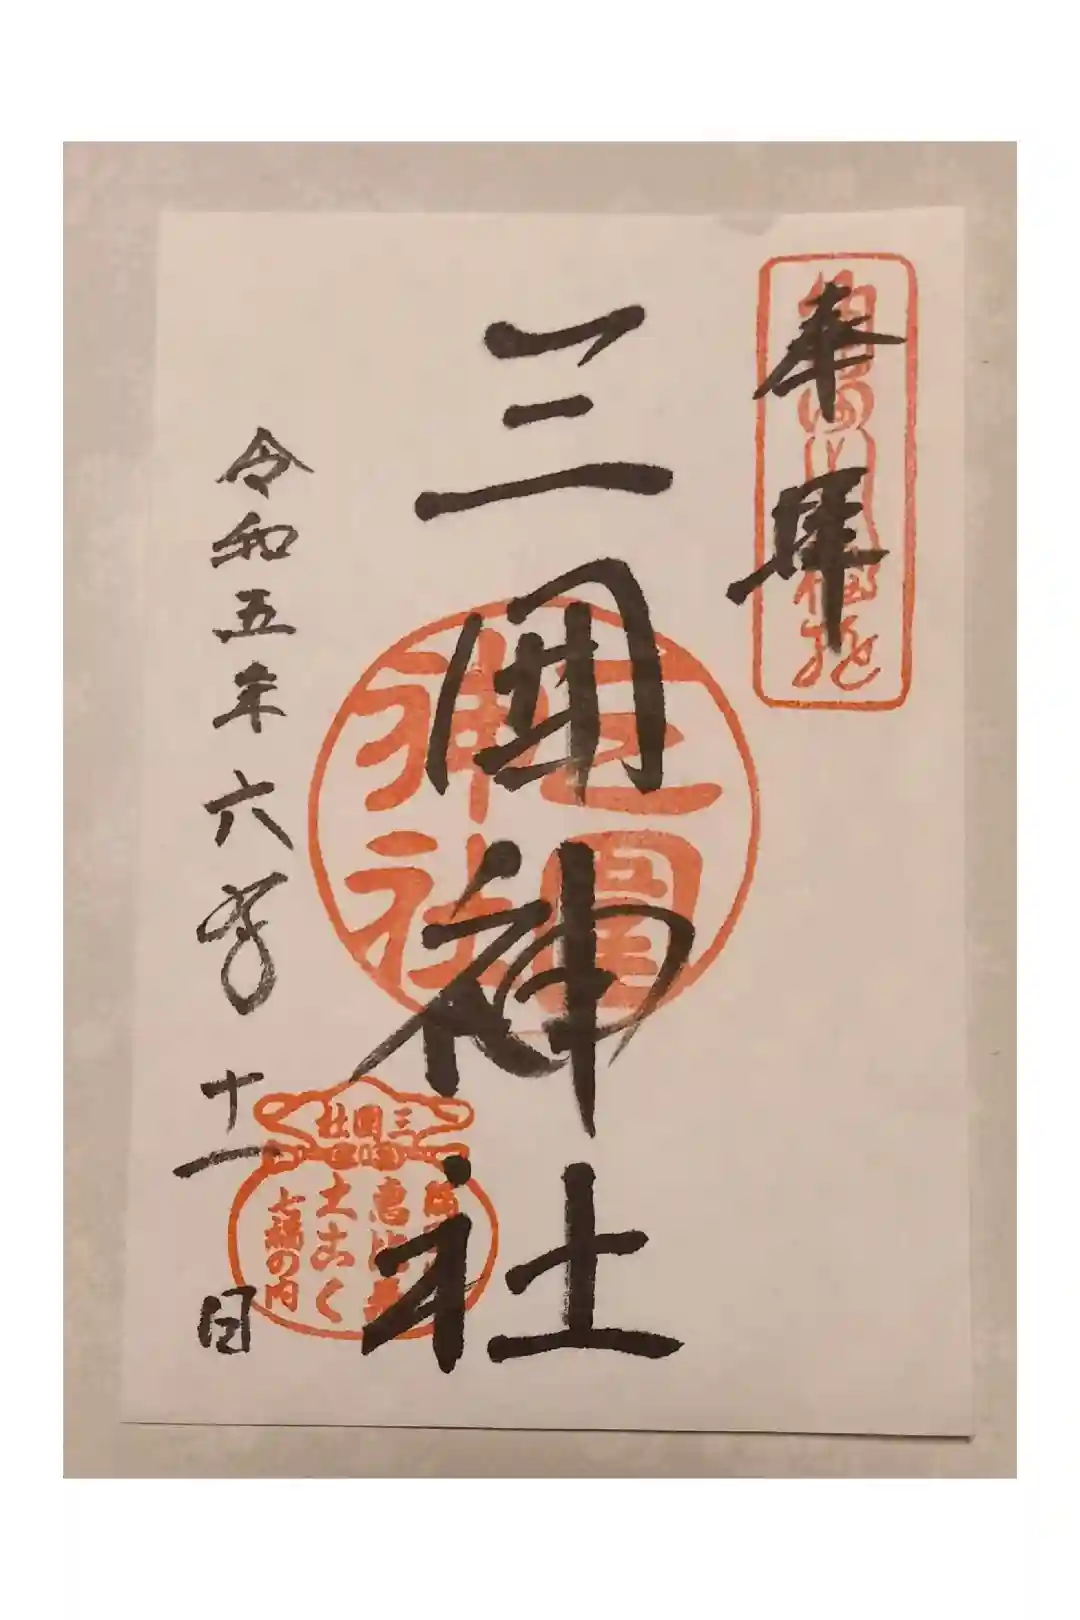 奉拝
三囲神社
三囲神社
令和五年六月十一日
三囲社
恵比寿
大こく
七福の内